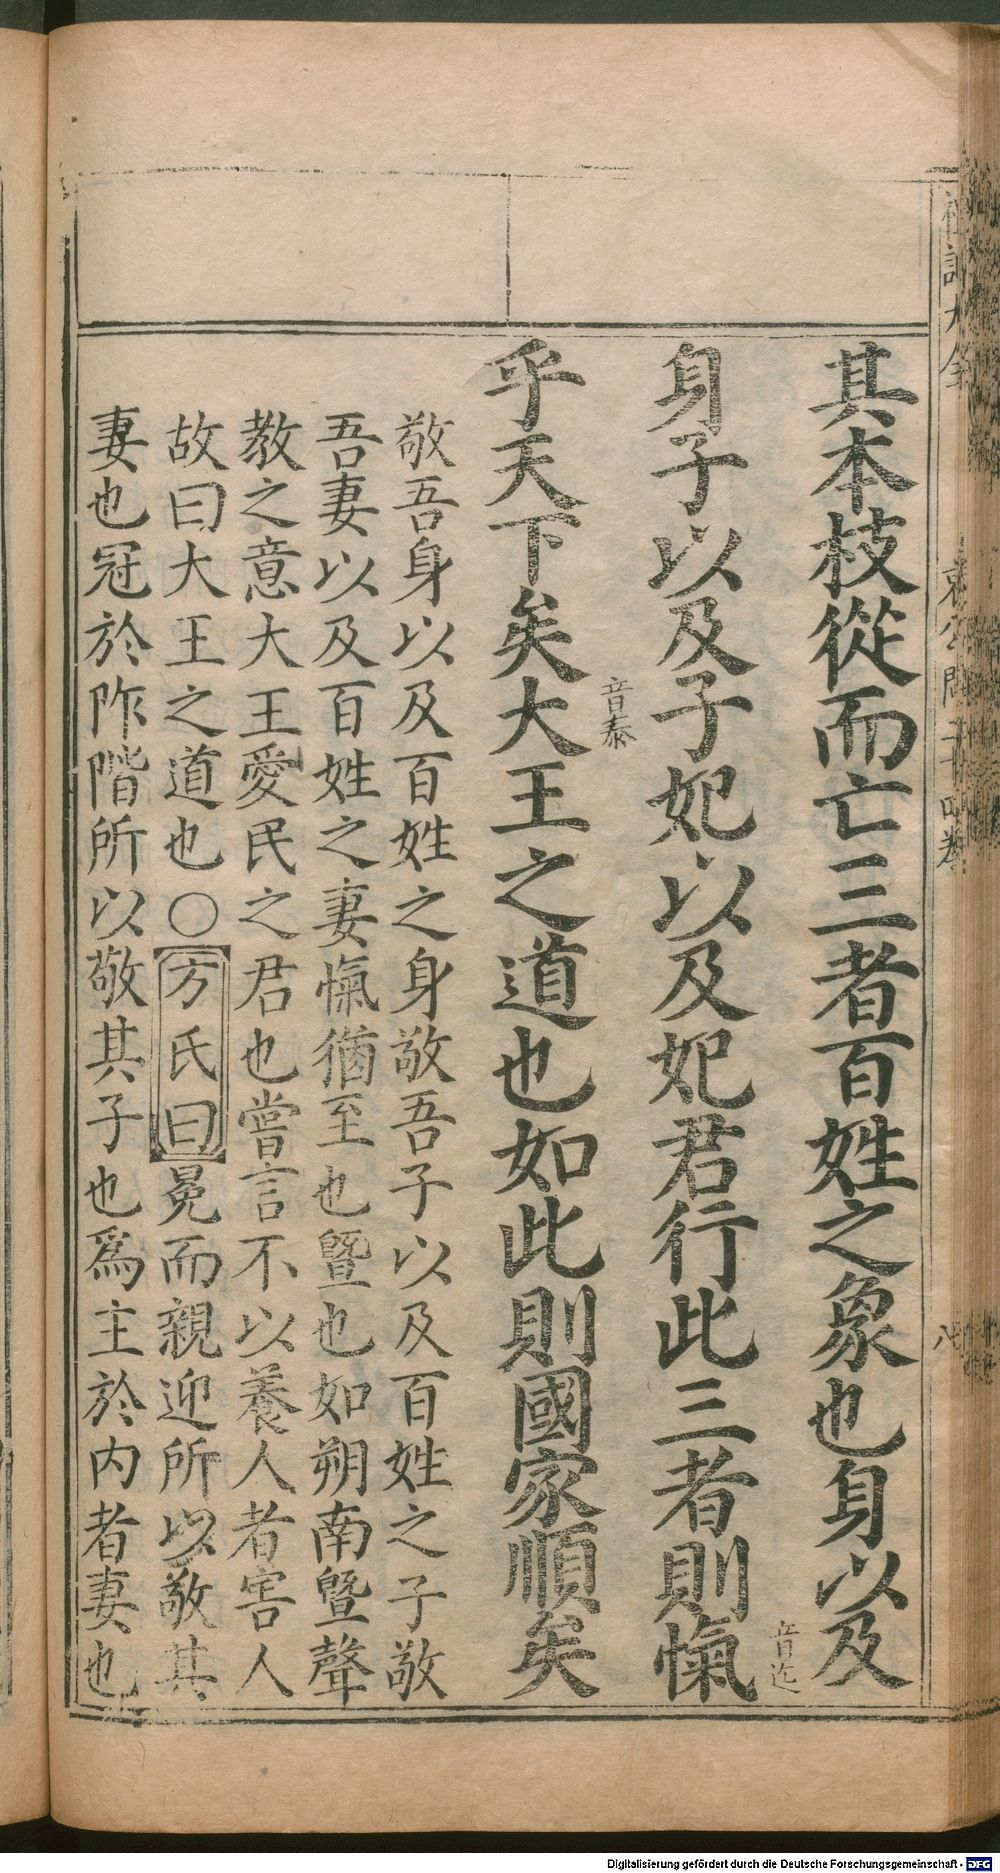 其本枝從而亡三者百姓之象也身以及
音迄
身子以及子妃以及妃君行此三者則愾
音泰
乎天下矣大王之道也如此則國家順矣
敬吾身以及百姓之身敬吾子以及百姓之子敬
吾妻以及百姓之妻愾猶至也曁也如朔南曁聲
教之意大王愛民之君也嘗言不以養人者害人
故曰大王之道也○方氏曰冕而親迎所以敬其
妻也冠於阼階所以敬其子也爲主於内者妻也
Digitalisierung gefördert durch die Deutsche Forschungsgemeinschaft - DFG